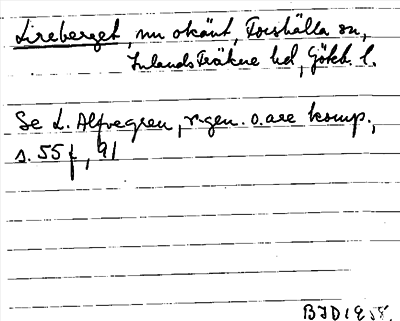 Lireberget, nu okänt, Forshälla sn,
Inlands Fräkne hd, Götéb. l.
Se L. Alfvegren, r-gen. o. are komp.,
s. 55 f, 91
BJD 1958.